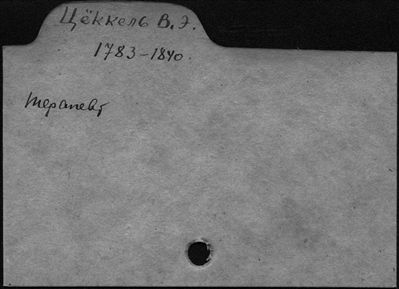 Цёккель В. Э.
1783-1840.
терапевт